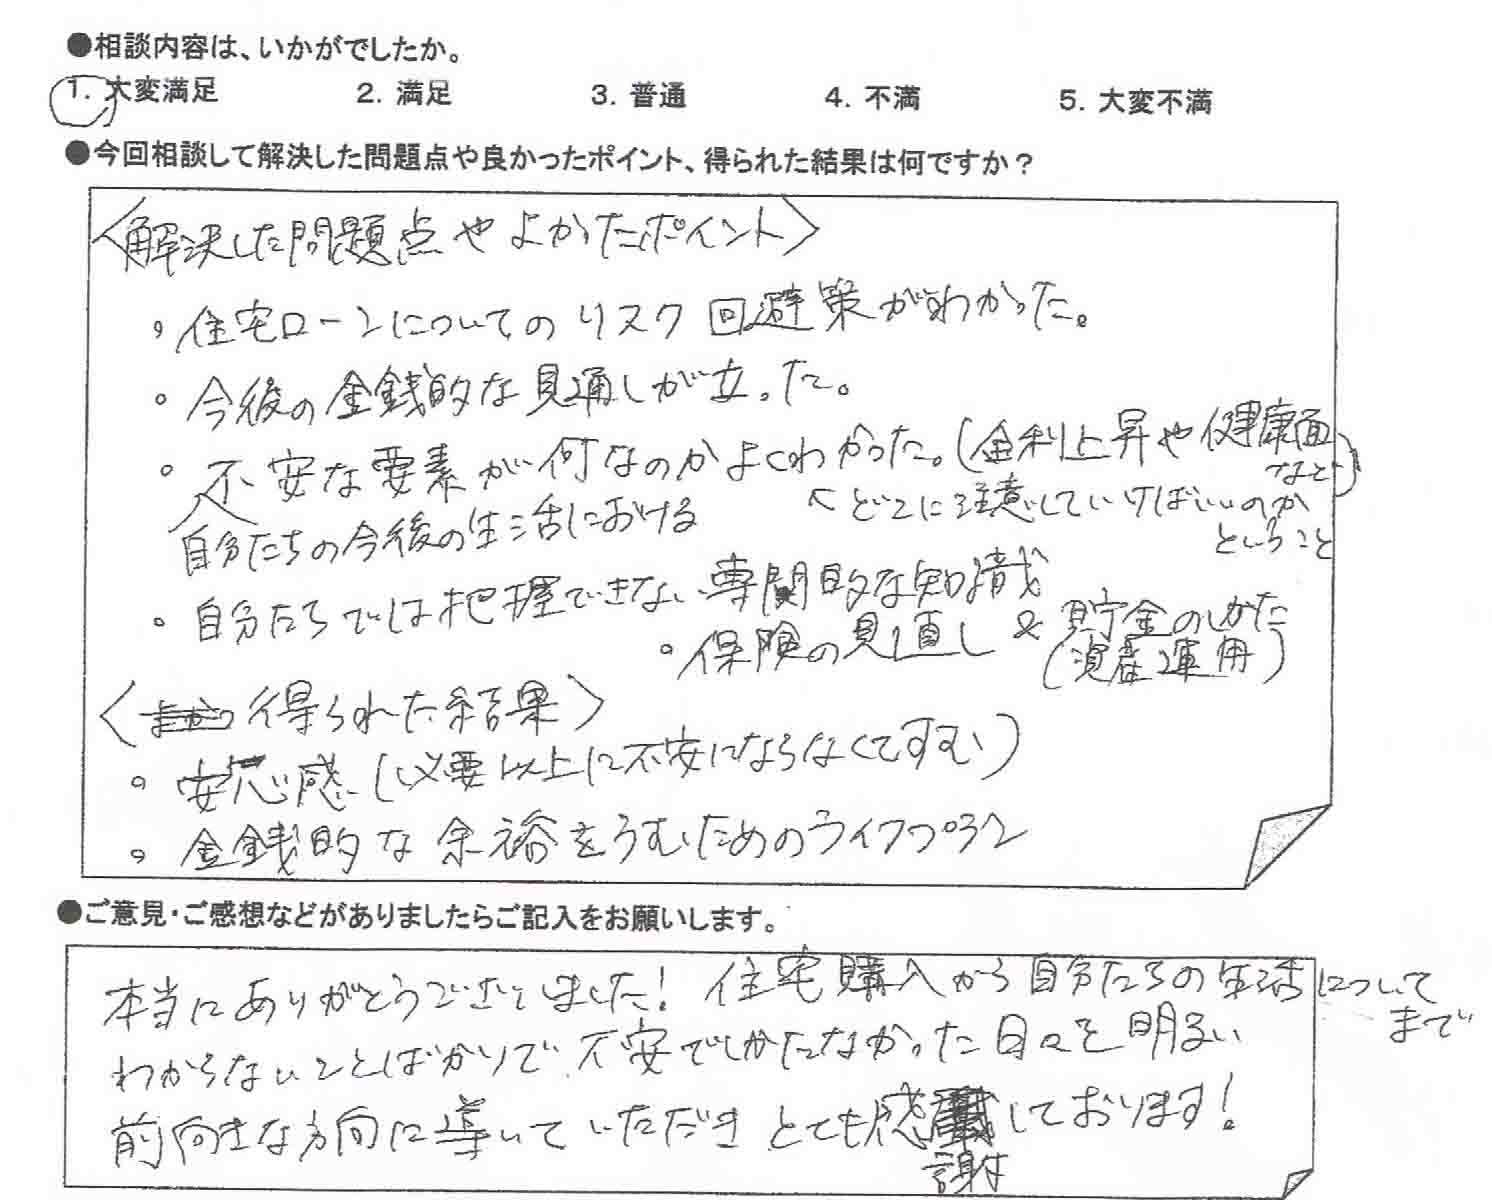 ●相談内容は、いかがでしたか。
1. 大変満足 2. 満足 3. 普通 4. 不満 5. 大変不満
●今回相談して解決した問題点や良かったポイント、得られた結果は何ですか？
〈解決した問題点やよかったポイント〉
・住宅ローンについてのリスク回避策がわかった。
・今後の金銭的な見通しが立った。
・不安な要素が何なのかよくわかった。(金利上昇や健康面など)
自分たちの今後の生活における
↖どこに注意していけばいいのか
ということ
・自分たちでは把握できない専門的な知識
・保険の見直し & 貯金のしかた
(資産運用)
〈得られた結果〉
・安心感 (必要以上に不安にならなくてすむ)
・金銭的な余裕をうむためのライフプラン
●ご意見・ご感想などがありましたらご記入をお願いします。
本当にありがとうございました! 住宅購入から自分たちの生活について
まで
わからないことばかりで 不安でしかたなかった日々を明るい
前向きな方向に導いていただき とても感謝しております!